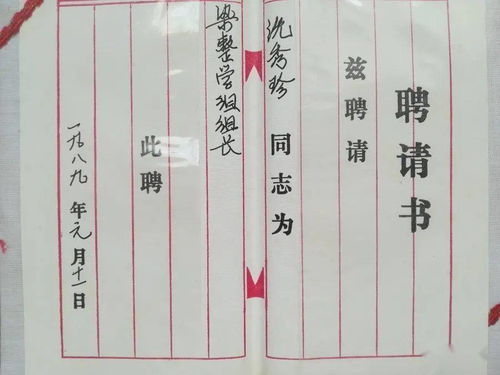 聘请书
兹聘请
沈秀珍同志为
染整学组组长
此聘
一九八九年元月十一日